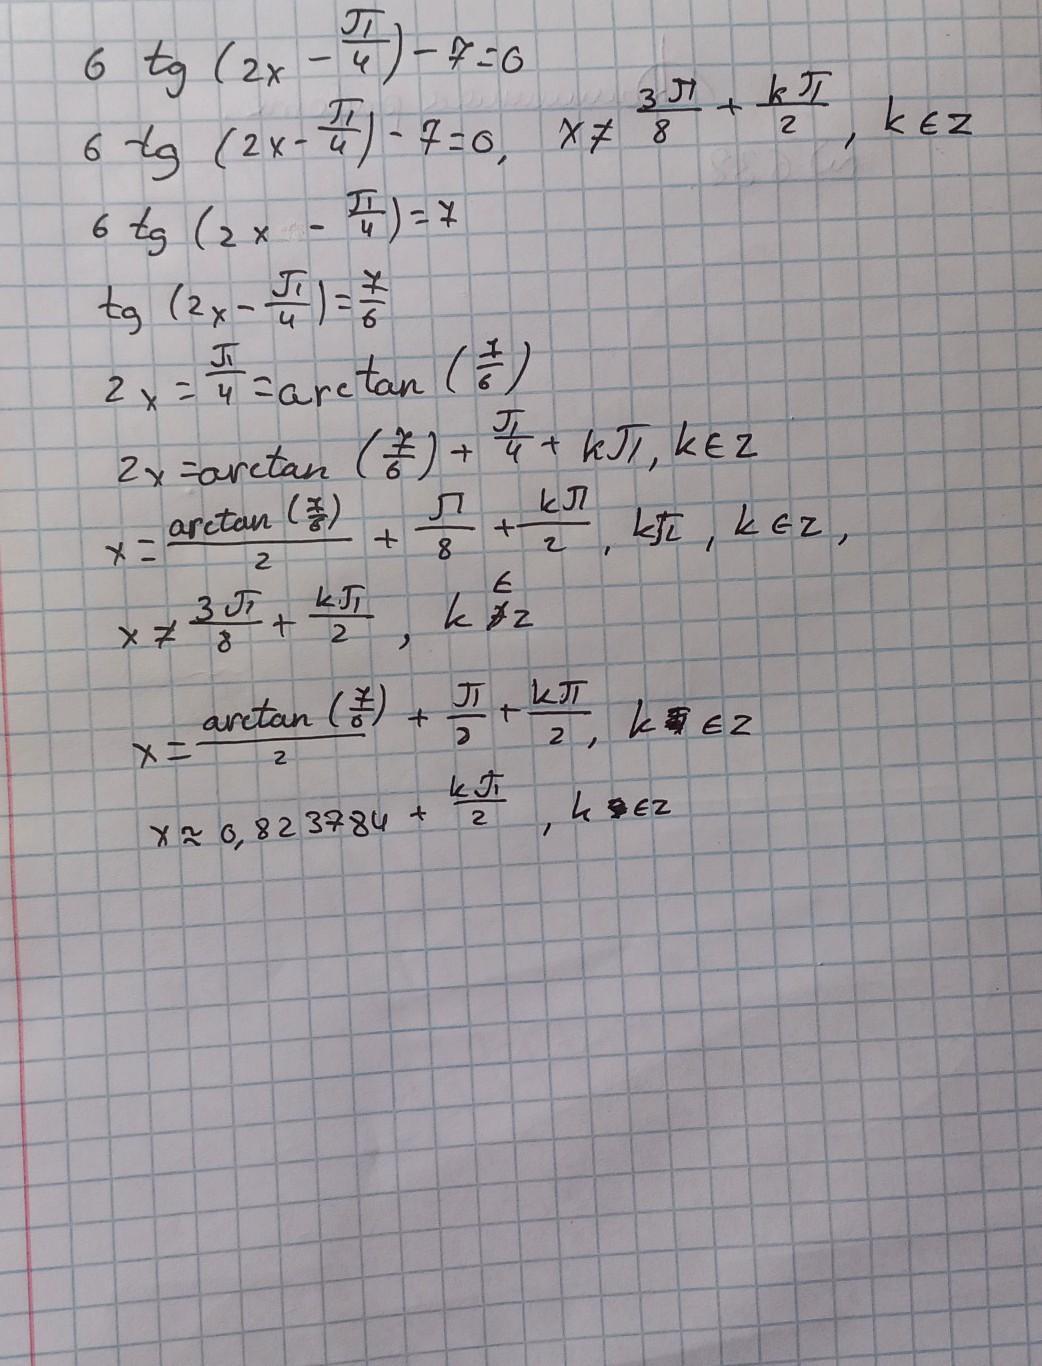 6 tg (2x - π/4) - 7 = 0
6 tg (2x - π/4) - 7 = 0, x ≠ 3π/8 + kπ/2, k ∈ z
6 tg (2x - π/4) = 7
tg (2x - π/4) = 7/6
2x = π/4 = arctan (7/6)
2x = arctan (7/6) + π/4 + kπ, k ∈ z
x = arctan (7/6)/2 + π/8 + kπ/2, kπ, k ∈ z,
x ≠ 3π/8 + kπ/2, k ∈ z
x = arctan (7/6)/2 + π/2 + kπ/2, k ∈ z
x ≈ 0,823784 + kπ/2, k ∈ z